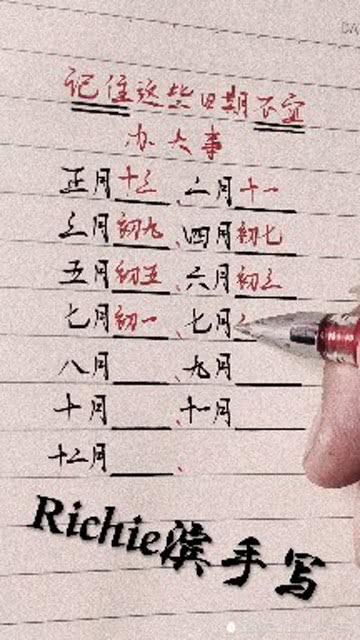 记住这些日期不宜
办大事
正月十三、二月十一
三月初九、四月初七
五月初五、六月初三
七月初一、七月
八月、九月
十月、十一月
十二月、
Richie滨手写